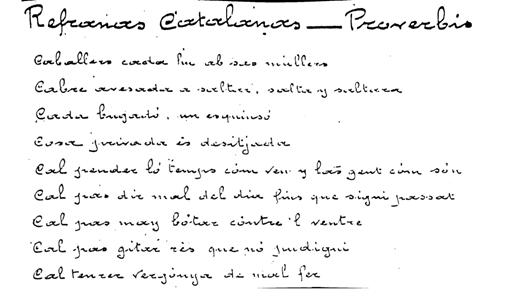 Refranas Catalanas — Proverbis
Caballers cada hu ab ses mullers
Cabre avesada a saltar, salta y saltara
Cada bugadó, un esquinsó
Cosa privada és desitjada
Cal prender ló temps cóm ven y las gent cóm són
Cal pas dir mal del dia fins que sigui passat
Cal pas may bótar cóntre 'l ventre
Cal pas gitar rès que nó pudigni
Cal tenrer vergónya de mal fer